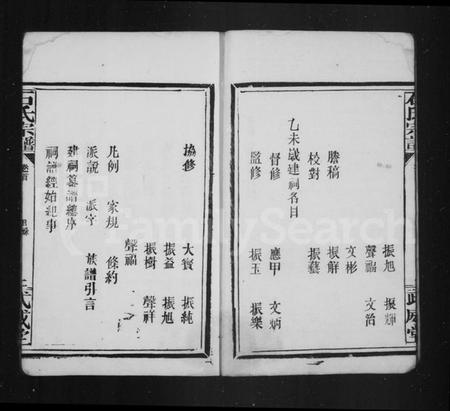 振旭 振輝
聲福 文治
文彬
謄稿 振解
校對 振藝
乙未歲建祠名目
督修 應甲 文炳
監修 振玉 振樂
武威堂
協修 大賓 振純
振益 振旭
振樹 聲祥
聲福
凡例 家規 條約
派說 派字 族譜引言
建祠募譜總序
祠譜經始紀事
石氏宗譜
卷首
武威堂
FamilySearch